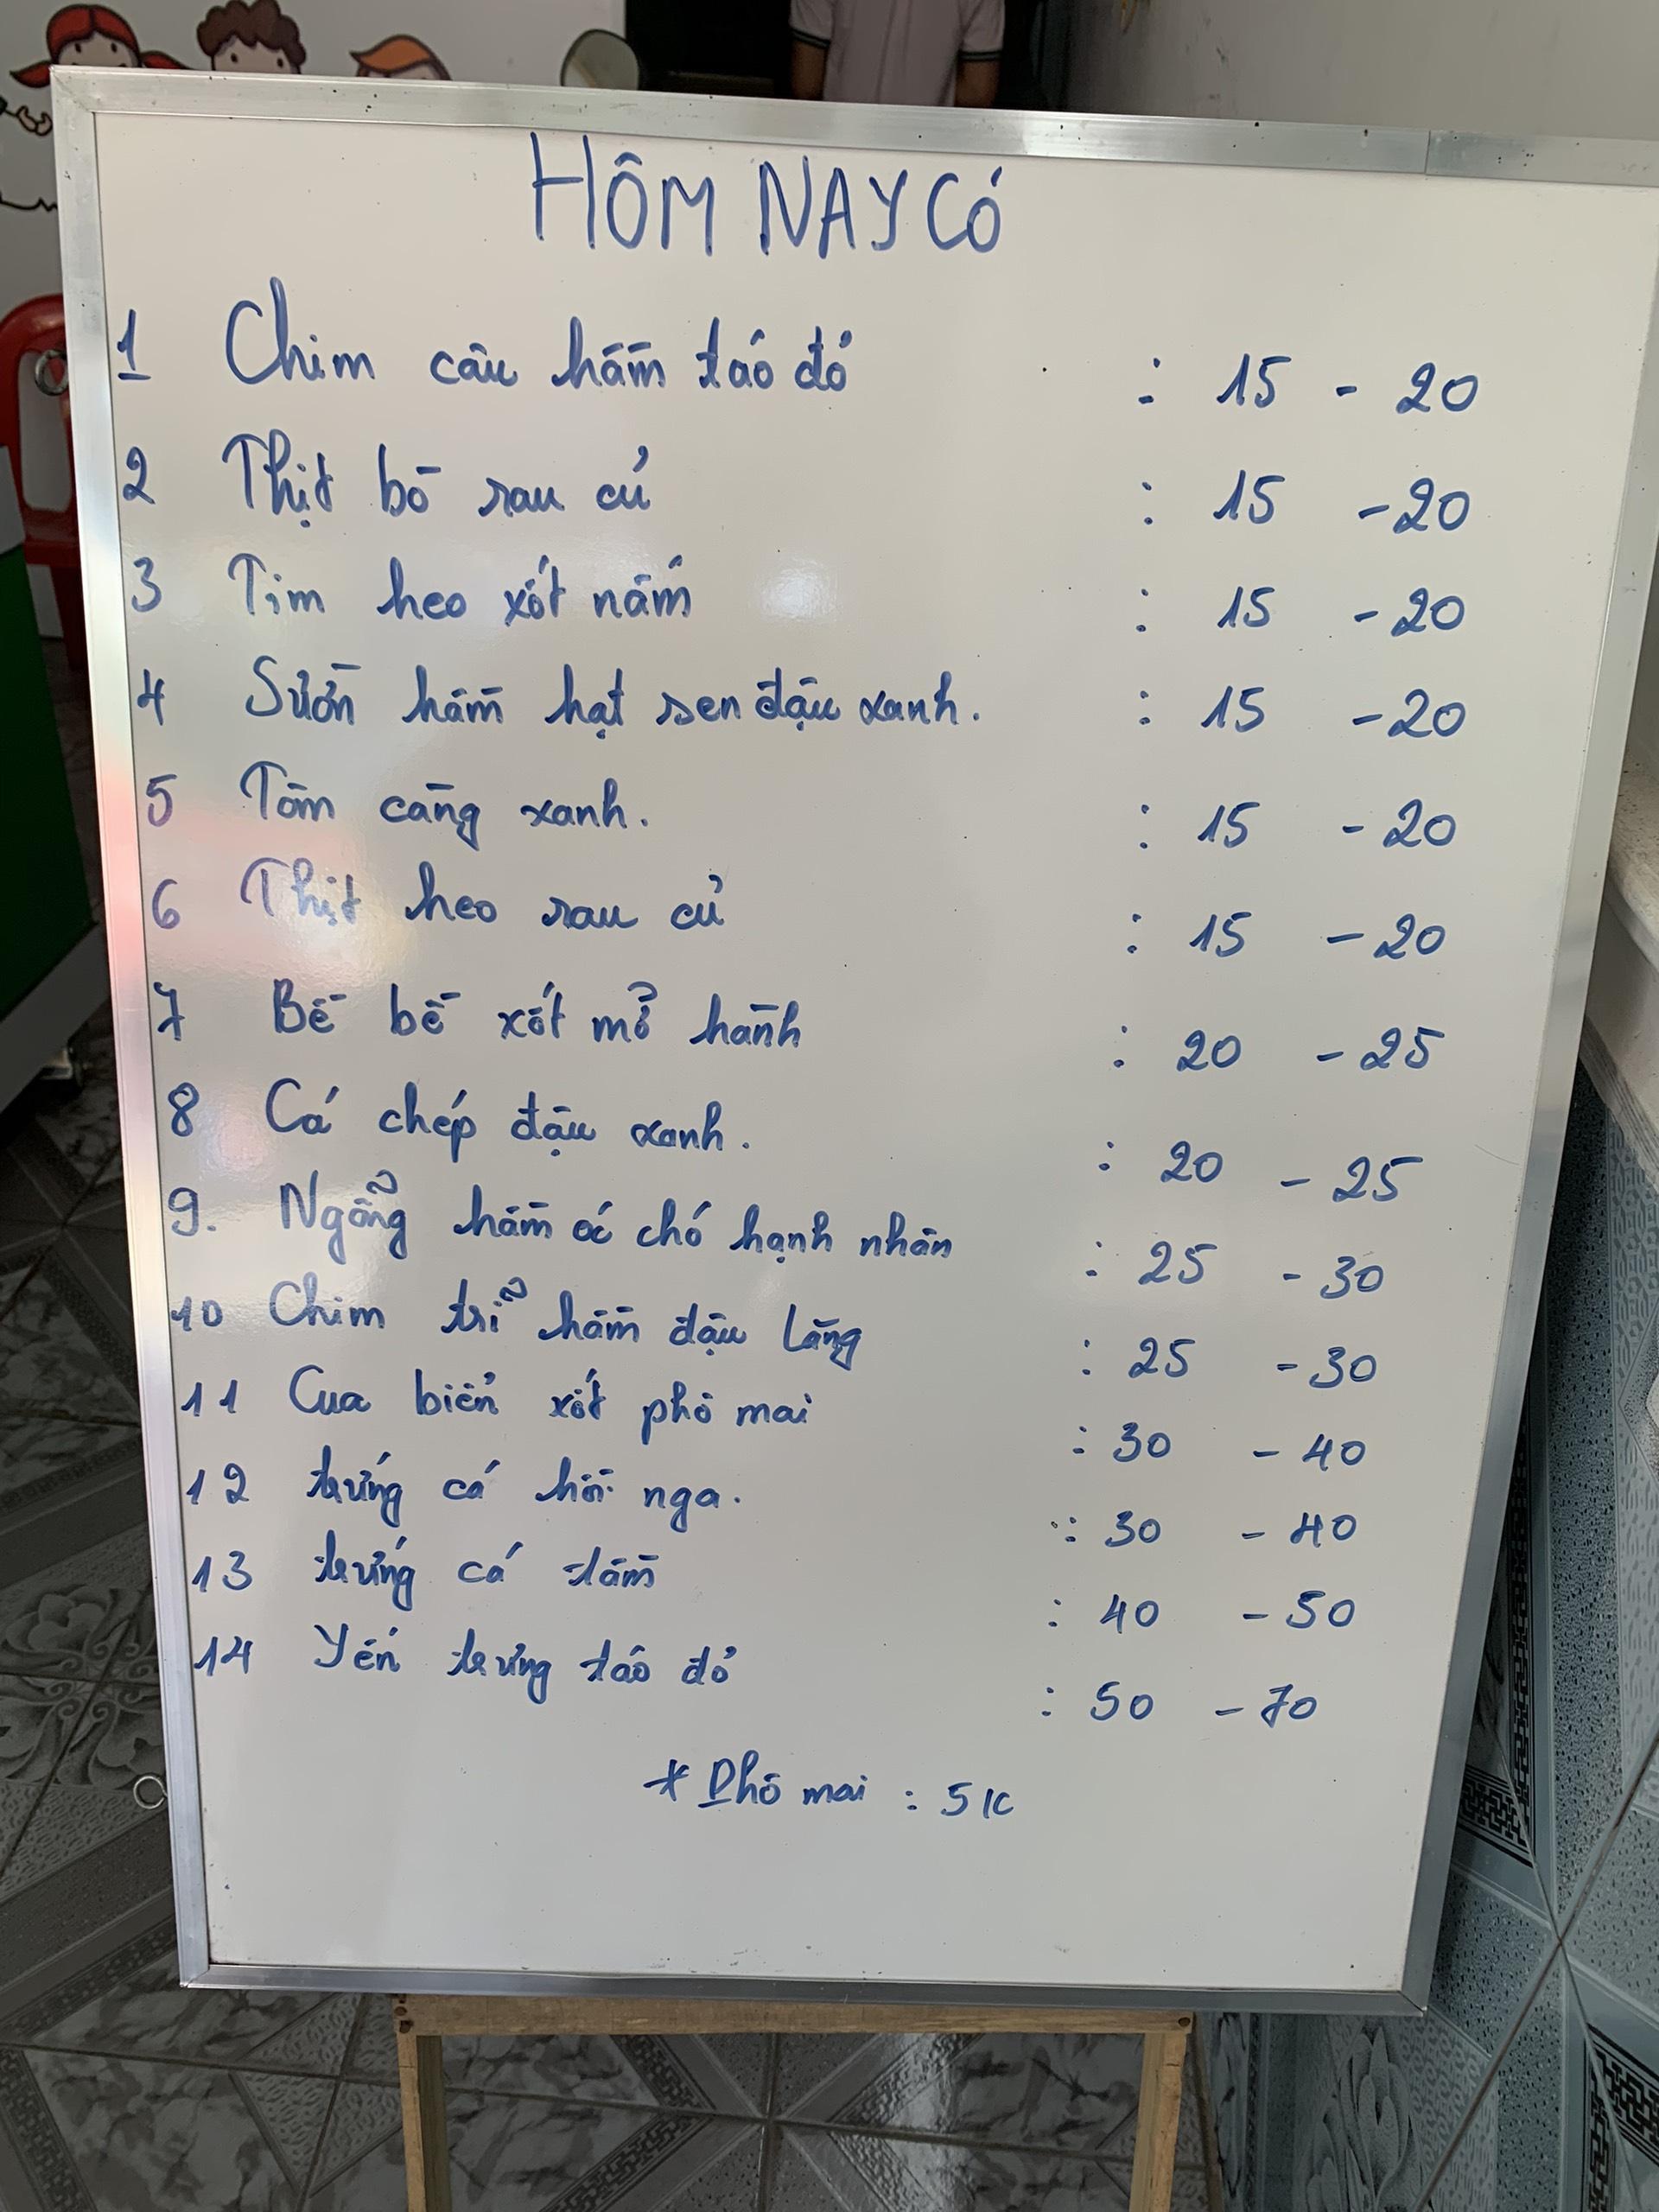 HÔM NAY CÓ
1 Chim câu hầm táo đỏ : 15 - 20
2 Thịt bò rau củ : 15 - 20
3 Tim heo xốt nấm : 15 - 20
4 Sườn hầm hạt sen đậu xanh. : 15 - 20
5 Tôm càng xanh. : 15 - 20
6 Thịt heo rau củ : 15 - 20
7 Bề bề xốt mỡ hành : 20 - 25
8 Cá chép đậu xanh. : 20 - 25
9. Ngỗng hầm óc chó hạnh nhân : 25 - 30
10 Chim trĩ hầm đậu lăng : 25 - 30
11 Cua biển xốt phô mai : 30 - 40
12 trứng cá hồi nga. : 30 - 40
13 trứng cá tầm : 40 - 50
14 Yến trưng táo đỏ : 50 - 70
* Phô mai : 5K